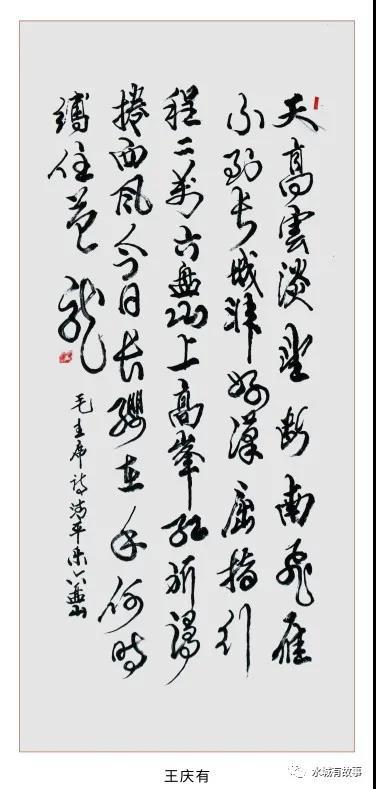 天高雲淡望断南飛雁
不到长城非好漢屈指行
程二萬六盘山上高峯红旗漫
捲西风今日长缨在手何時
缚住苍龙
毛主席诗清平乐六盘山
王庆有
水城有故事